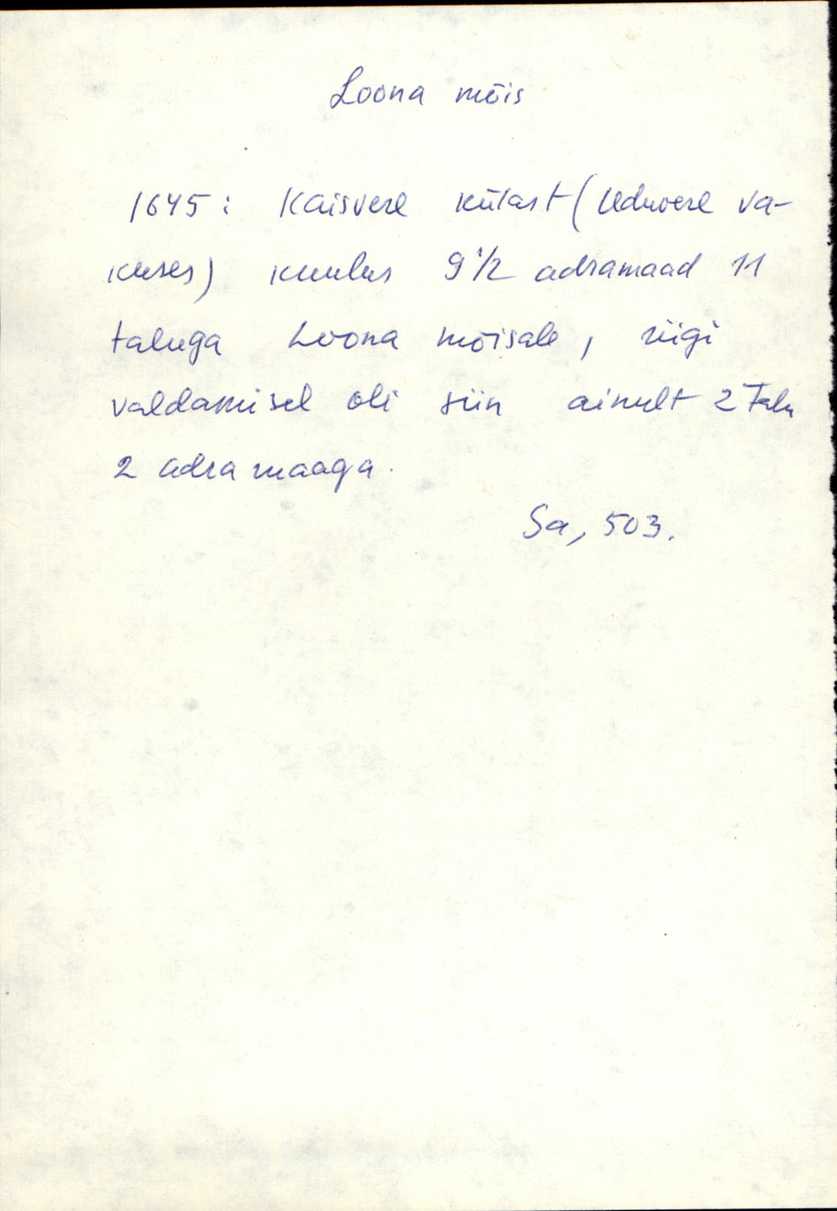 Loona mõis
1645: Kaisvere külast (Uduvere va-
kuses) kuulus 9 1/2 adramaad 11
taluga Loona mõisale, riigi
valdamisel oli siin ainult 2 talu
2 adramaaga.
Sa, 503.